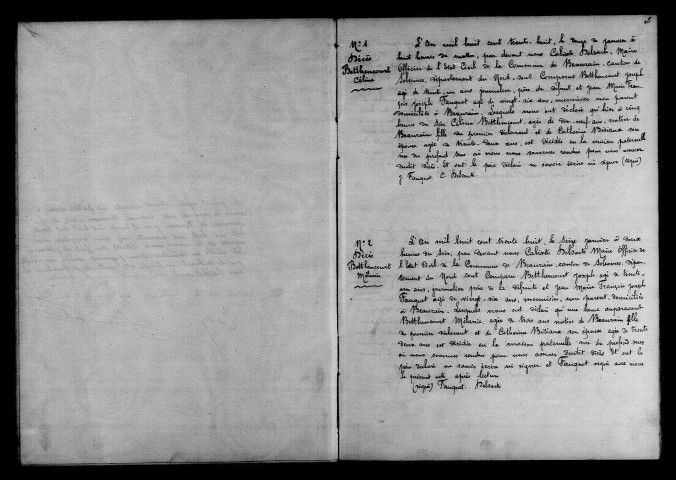 N° 1
Décès
Betthencourt
Céline
L'An mil huit cent trente-huit, le douze de janvier à
huit heures du matin, par devant nous Calixte Delsarte, Maire
Officier de l'Etat Civil de la Commune de Beaurain, canton de
Solesmes, département du Nord, sont Comparus Betthencourt Joseph
agé de trente-un ans journalier, père du défunt et Jean Marie Fran
çois Joseph Fauquet agé de vingt-six ans, menuisier non parent
domiciliés à Beaurain. Lesquels nous ont déclaré qu'hier à cinq
heures du soir Céline Betthencourt, agée de neuf ans, native de
Beaurain fille du premier déclarant et de Catherine son
épouse agée de trente-deux ans, est décédée en la maison paternelle
rue du profond sens où nous nous sommes rendus pour nous assurer
dudit décès. Et ont le père déclaré ne savoir écrire ni signer (signé)
J. Fauquet C. Delsarte
N° 2
Décès
Betthencourt
L'An mil huit cent trente huit, le seize janvier à deux
heures du soir, par devant nous Calixte Delsarte Maire Officier de
l'Etat Civil de la Commune de Beaurain, canton de Solesmes, dépar
tement du Nord sont Comparus Betthencourt Joseph agé de trente
un ans, journalier père de la défunte et Jean Marie François Joseph
Fauquet agé de vingt-six ans, menuisier, non parent, domiciliés
à Beaurain. Lesquels nous ont déclaré qu'une heure auparavant
Betthencourt Mélanie, agée de trois ans native de Beaurain fille
du premier déclarant et de Catherine son épouse agée de trente
deux ans est décédée en la maison paternelle rue du profond sens
où nous nous sommes rendus pour nous assurer dudit décès Et ont le
père déclaré ne savoir écrire ni signer et Fauquet signé avec nous
le présent acte après lecture
(signé) Fauquet. Delsarte